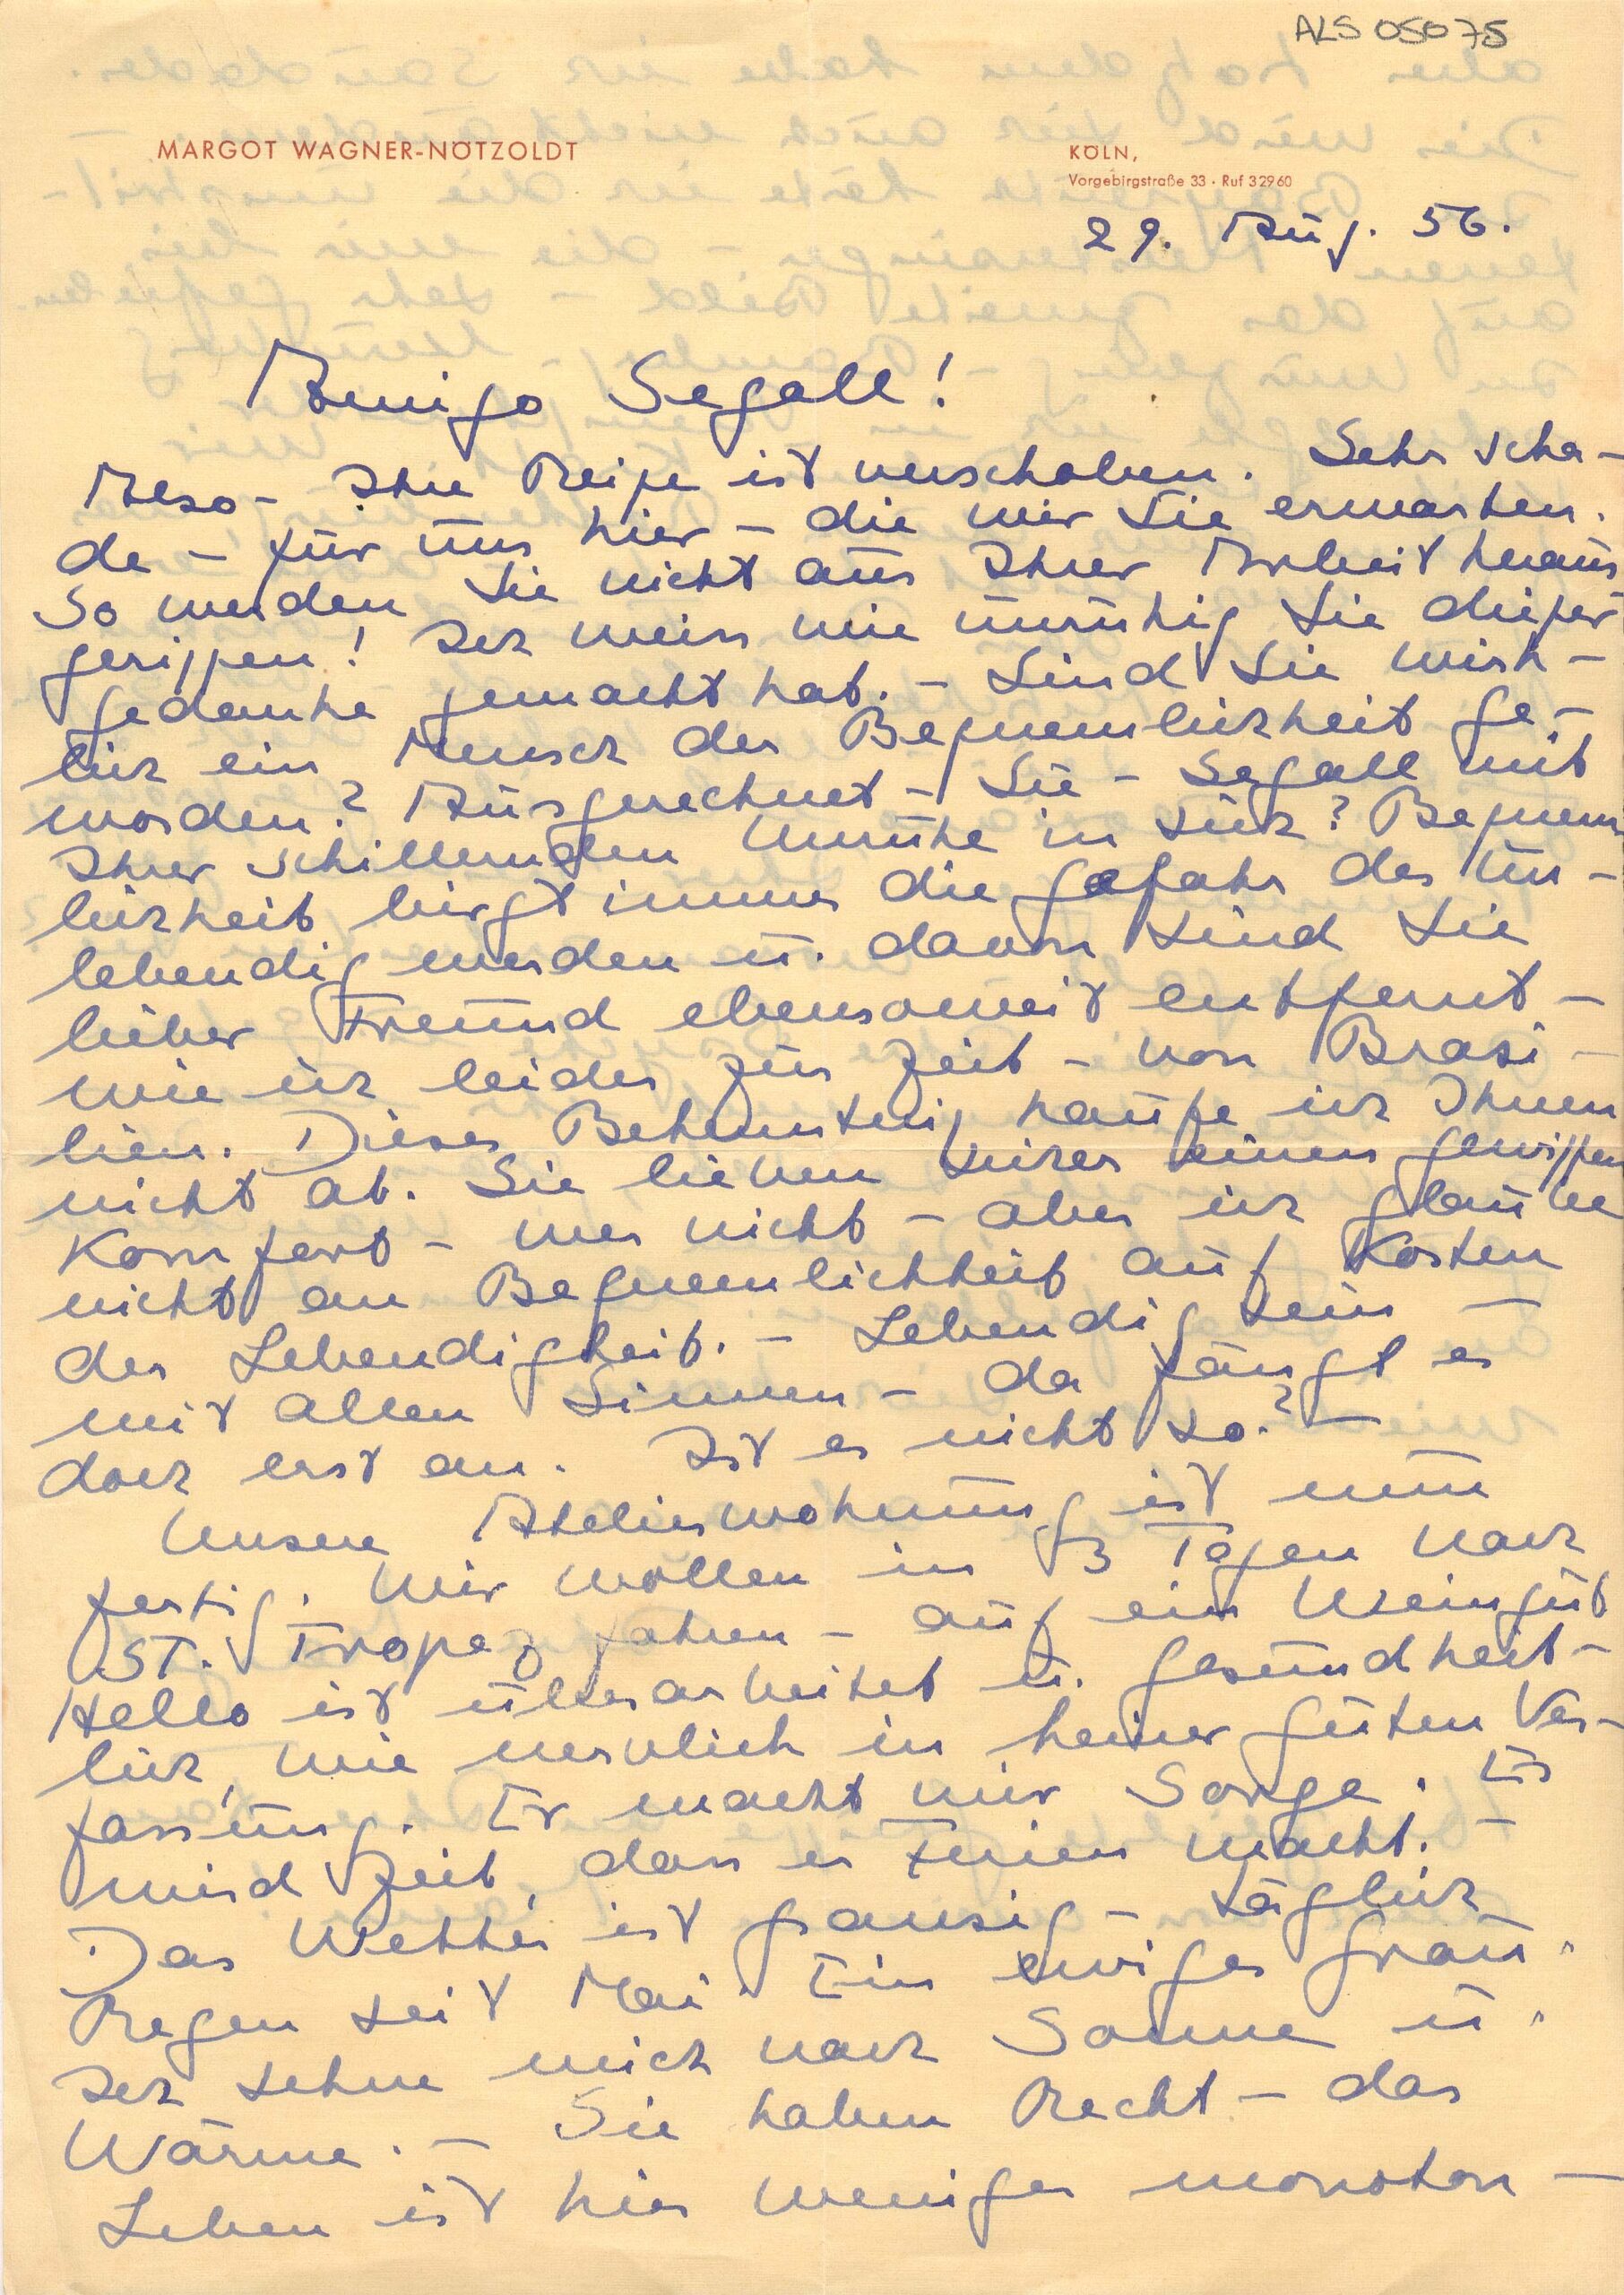 ALS 05075
MARGOT WAGNER-NÖTZOLDT
KÖLN,
Vorgebirgstraße 33 · Ruf 32960
29. Aug. 56.
Amigo Segall!
Also - Ihre Reise ist verschoben. Sehr scha-
de - für uns hier - die wir Sie erwarten.
So werden Sie nicht aus Ihrer Arbeit heraus
gerissen! Ich weiss wie unruhig Sie dieser
Gedanke gemacht hat. - Sind Sie wirk-
lich ein Mensch der Bequemlichkeit ge-
worden? Ausgerechnet - Sie - Segall mit
Ihrer schillernden Unruhe in sich? Bequem
lichkeit birgt immer die Gefahr des Un-
lebendig werden u. davon sind Sie
lieber Freund ebensoweit entfernt -
wie ich leider zur Zeit - von Brasi-
lien. Dieses Bekenntnis kaufe ich Ihnen
nicht ab. Sie lieben sicher einen gewissen
Komfort - wer nicht - aber ich glaube
nicht an Bequemlichkeit auf Kosten
der Lebendigkeit. - Lebendig sein -
mit allen Sinnen - da fängt es
doch erst an. Ist es nicht so? -
Unsere Atelierwohnung ist nun
fertig. Wir wollen in 3 Tagen nach
ST. Tropez fahren - auf ein Weingut
Hello ist überarbeitet u. gesundheit-
lich, wie nervlich in keiner guten Ver-
fassung. Er macht mir Sorge. Es
wird Zeit, dass er Ferien macht. -
Das Wetter ist grausig - täglich
Regen seit Mai. Ein ewiges Grau.
Ich sehne mich nach Sonne u.
Wärme. - Sie haben Recht - das
Leben ist hier weniger monoton -